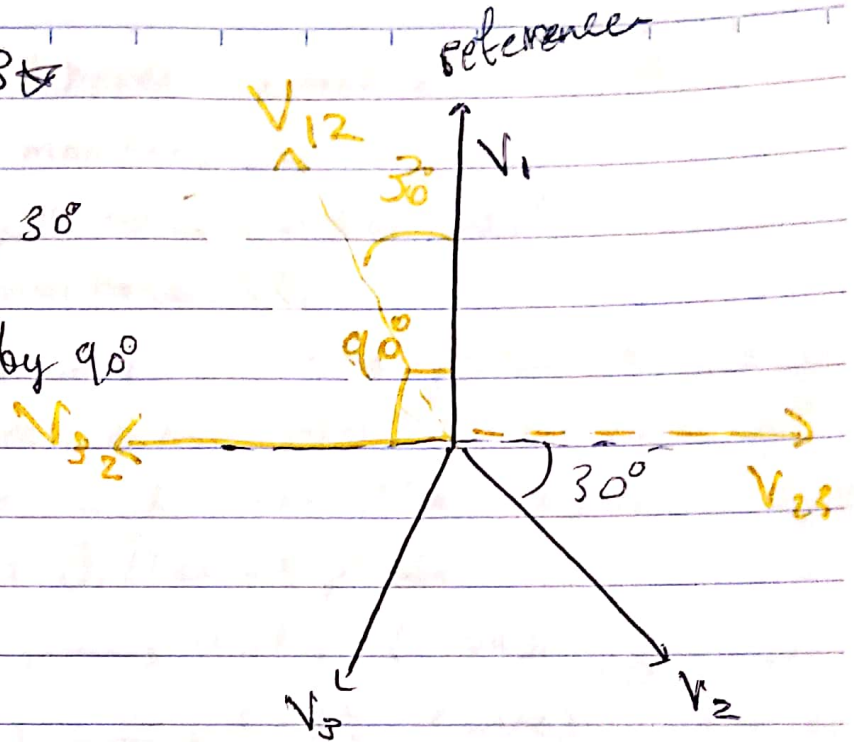 reference
V₁₂
V₁
30°
30°
90°
by 90°
V₃₂
30°
V₂₃
V₃
V₂